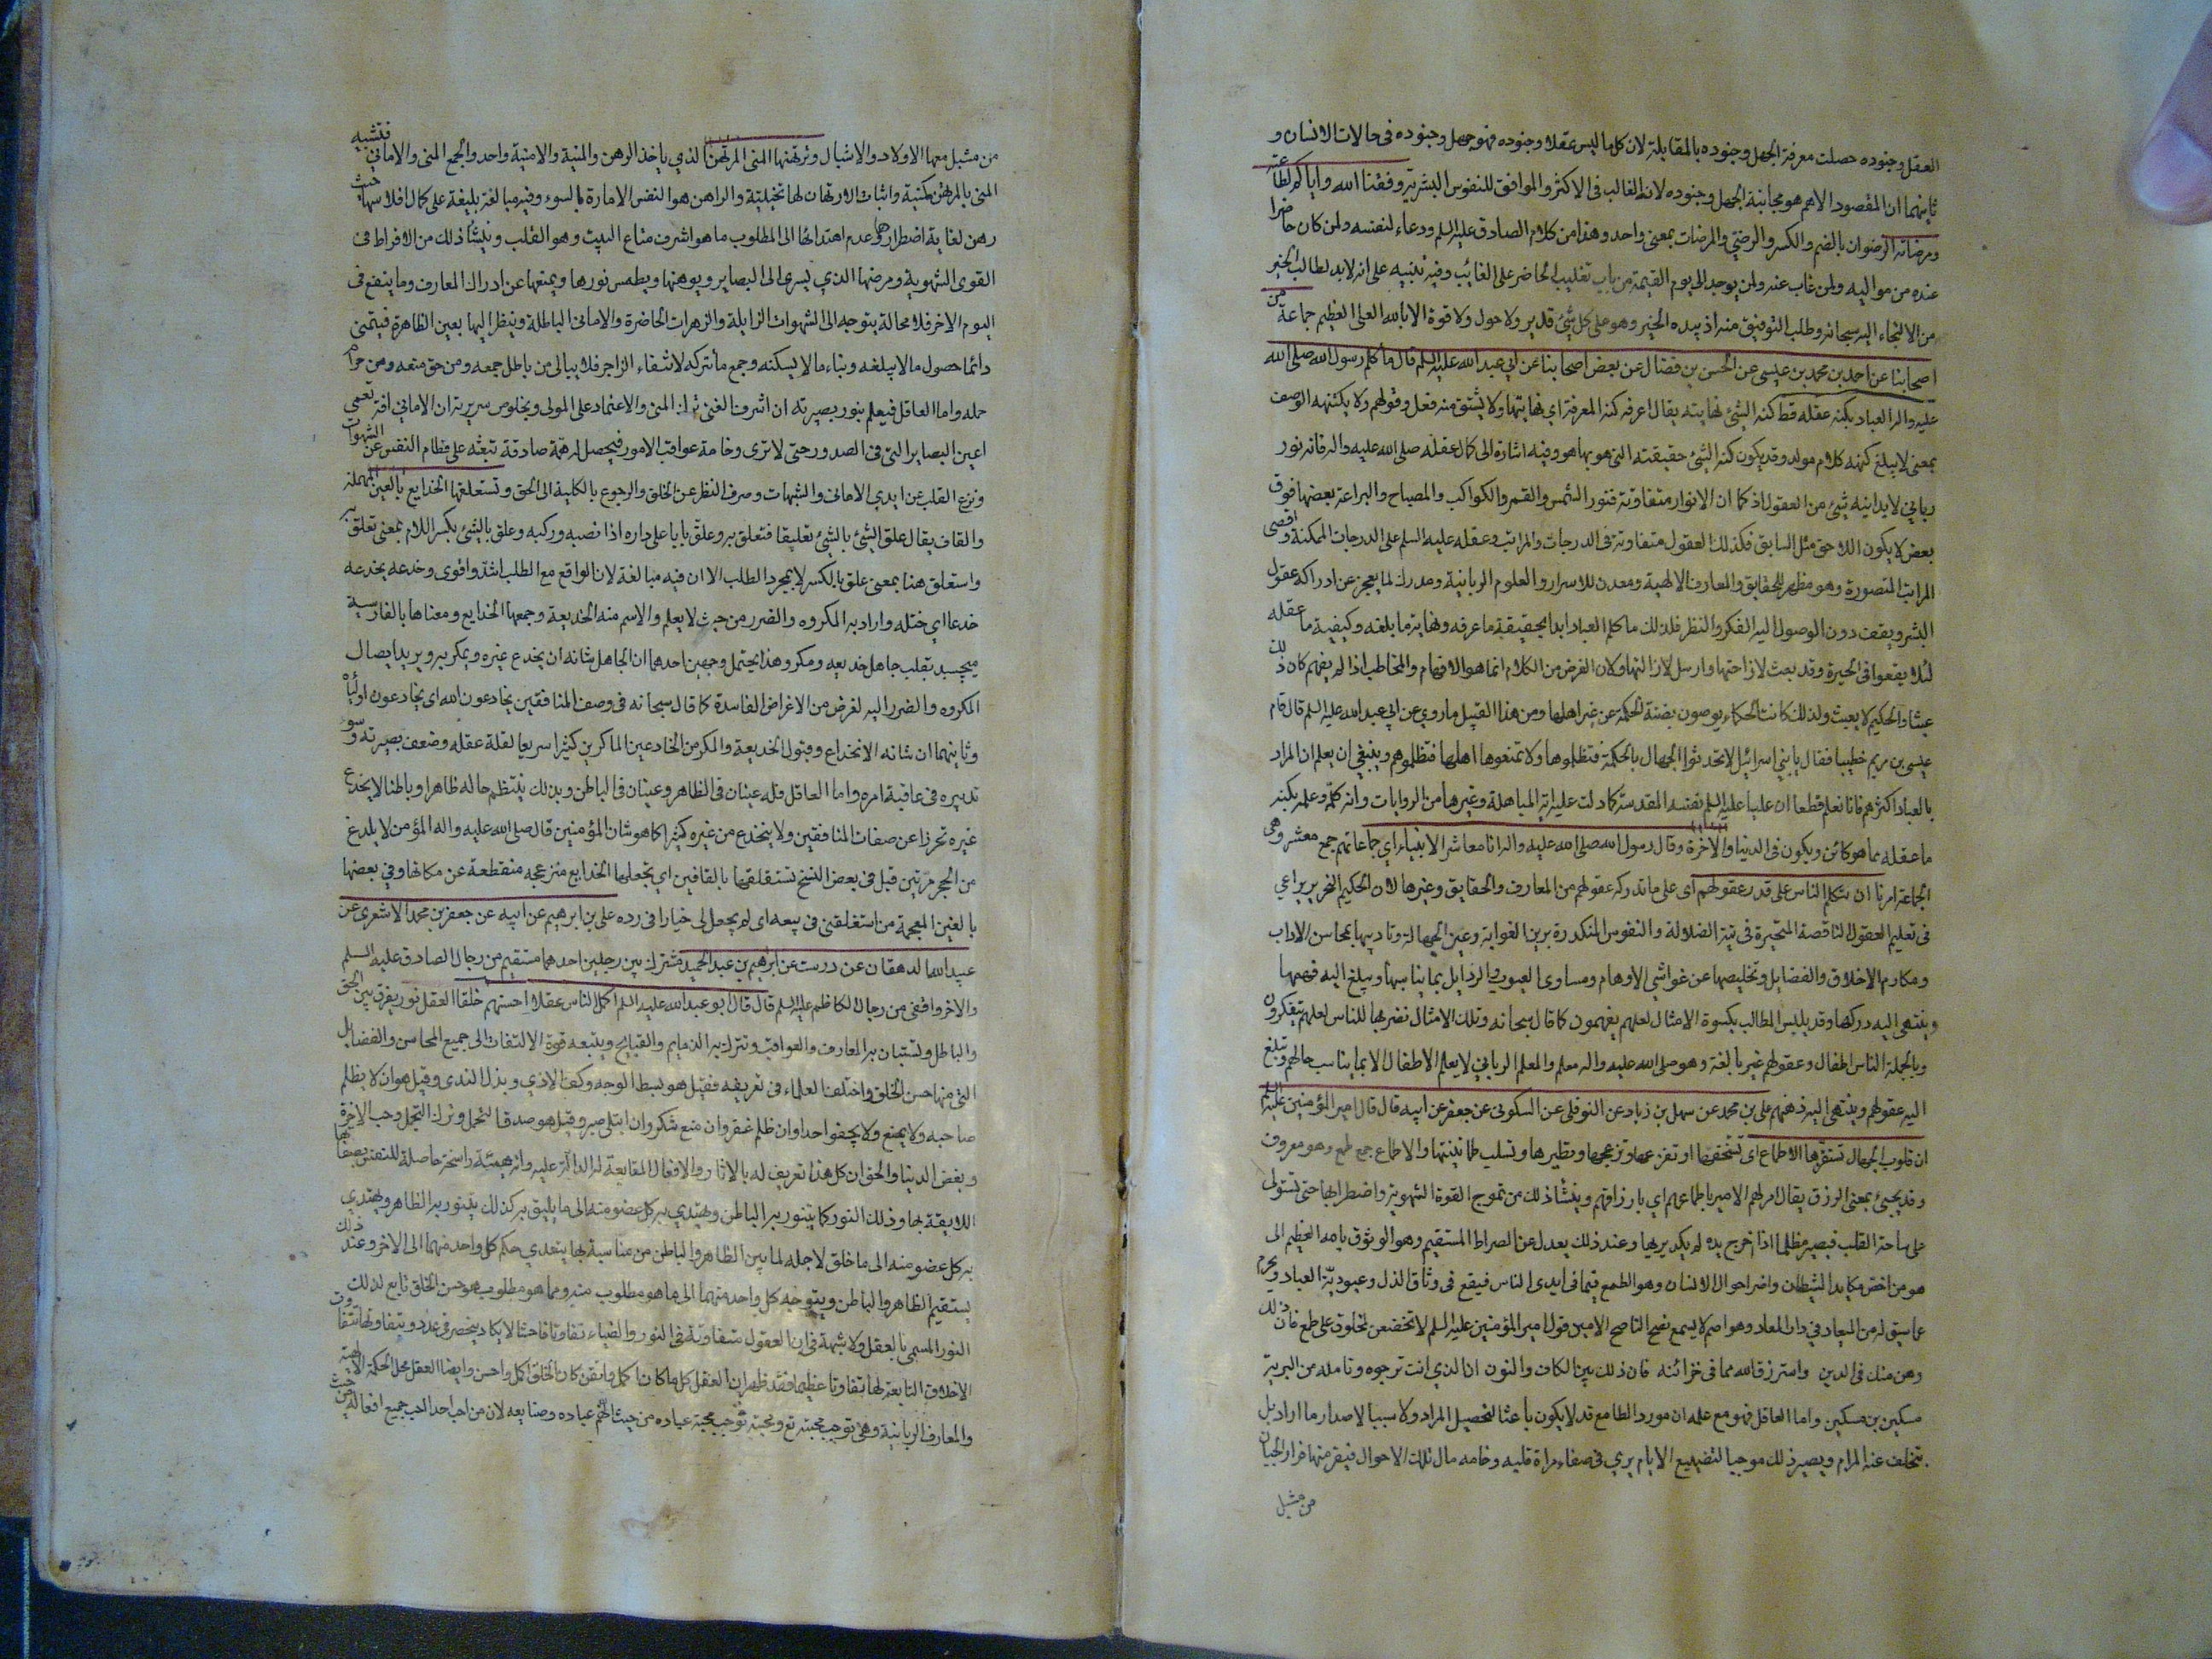 العقل وجنوده حصلت معرفة الجهل وجنوده بالمقابلة لان كل ما ليس عقلا وجنوده فهو جهل وجنوده فى حالات الانسان و
ثانيهما ان المقصود الاهم هو مجانبة الجهل وجنوده لانه الغالب فى الاكثر والموافق للنفوس البشرية وفقنا الله واياكم لطاعته
ومرضاته الرضوان بالضم والكسر والرضى والمرضات بمعنى واحد وهذا من كلام الصادق عليه السلم ودعاء لنفسه ولمن كان حاضرا
عنده من مواليه ولمن غاب عنه ولمن يوجد الى يوم القيمة من باب تغليب الحاضر على الغائب وفيه تنبيه على انه لابد لطالب الخير
من الالتجاء اليه سبحانه وطلب التوفيق منه اذ بيده الخير وهو على كل شئ قدير ولا حول ولا قوة الا بالله العلى العظيم جماعة من
اصحابنا عن احمد بن محمد بن عيسى عن الحسن بن فضال عن بعض اصحابنا عن ابي عبد الله عليه السلم قال ما كلم رسول الله صلى الله
عليه واله العباد بكنه عقله قط كنه الشئ نهايته يقال اعرفه كنه المعرفة اي نهايتها ولا يشتق منه فعل وقولهم ولا يكتنهه الوصف
بمعنى لا يبلغ كنهه كلام مولد وقد يكون كنه الشئ حقيقته التى هو بها هو وفيه اشارة الى كمال عقله صلى الله عليه واله فانه نور
رباني لا يدانيه شئ من العقول اذ كما ان الانوار متفاوتة فنور الشمس والقمر والكواكب والمصباح واليراعة بعضها فوق
بعض لا يكون اللاحق مثل السابق فكذلك العقول متفاوتة فى الدرجات والمراتب وعقله عليه السلم على الدرجات الممكنة واقصى
المراتب المتصورة وهو مظهر للحقايق والمعارف الالهية ومعدن للاسرار والعلوم الربانية ومدرك لما يعجز عن ادراكه عقول
البشر ويقف دون الوصول اليه الفكر والنظر فلذلك ما كلم العباد ابدا بحقيقة ما عرفه ونهاية ما بلغه وكيفية ما عقله
لئلا يقعوا فى الحيرة وقد بعث لازاحتها وارسل لازالتها ولان الغرض من الكلام انما هو الافهام والمخاطب اذا لم يفهم كان ذلك
عبثا والحكيم لا يعبث ولذلك كانت الحكماء يوصون بضنة الحكمة عن غير اهلها ومن هذا القبيل ما روي عن ابي عبد الله عليه السلم قال قام
عيسى بن مريم خطيبا فقال يا بنى اسرائيل لا تحدثوا الجهال بالحكمة فتظلموها ولا تمنعوها اهلها فتظلموهم وينبغي ان يعلم ان المراد
بالعباد اكثرهم فانا نعلم قطعا ان عليا عليه السلم نفسه المقدسة كما دلت عليه اية المباهلة وغيرها من الروايات وانه كلمه وعلمه بكنه
ما عقله مما هو كائن ويكون فى الدنيا والاخرة وقال رسول الله صلى الله عليه واله انا معاشر الانبياء اي جماعاتهم جمع معشر وهى
الجماعة امرنا ان نكلم الناس على قدر عقولهم اى على ما تدركه عقولهم من المعارف والحقايق وغيرها لان الحكيم النحرير يراعي
فى تعليم العقول الناقصة المتحيرة فى تيه الضلالة والنفوس المنكدرة برين الغواية وغين الجهالة وتاديبها بمحاسن الاداب
ومكارم الاخلاق والفضايل وتخليصها عن غواشي الاوهام ومساوى العيوب والرذايل بما يناسبها ويبلغ اليه فهمها
وينتهى اليه دركها وقد يلبس المطالب بكسوة الامثال لعلهم يفهمون كما قال سبحانه وتلك الامثال نضربها للناس لعلهم يتفكرون
وبالجملة الناس اطفال وعقولهم غير بالغة وهو صلى الله عليه واله معلم والمعلم الرباني لا يعلم الاطفال الا بما يناسب حالهم وتبلغ
اليه عقولهم وينتهى اليه ذهنهم على بن محمد عن سهل بن زياد عن النوفلى عن السكونى عن جعفر عن ابيه قال قال امير المؤمنين عليه السلم
ان قلوب الجهال تستفزها الاطماع اى تستخفها او تفزعها وتزعجها وتطيرها وتسلب طمانينتها والاطماع جمع طمع وهو معروف
وقد يجيئ بمعنى الرزق يقال امر لهم الامير باطماعهم اي بارزاقهم وينشأ ذلك من تموج القوة الشهوية واضطرابها حتى تستولى
على ساحة القلب فيصير مظلما اذا اخرج يده لم يكد يريها وعند ذلك يعدل عن الصراط المستقيم وهو الوثوق بالله العظيم الى
هو من اخص مكايد الشيطان واضر احوال الانسان وهو الطمع فيما فى ايدى الناس فيقع فى وثاق الذل وعبودية العباد ويحرم
عما سبق له من الميعاد فى دار المعاد وهو اصم لا يسمع نصح الناصح الامين قول امير المؤمنين عليه السلم لا تخضعن لمخلوق على طمع فان ذلك
وهن منك فى الدين واسترزق الله مما فى خزائنه فان ذلك بين الكاف والنون ان الذي انت ترجوه وتامله من البرية
مسكين بن مسكين واما العاقل فهو مع علمه ان مورد الطامع قد لا يكون باعثا لتحصيل المراد ولا سببا لاصدار ما اراد بل
يتخلف عنه المرام ويصير ذلك موجبا لتضييع الايام يري فى صفاء مراة قلبه وخامة مال تلك الاحوال فيفر منها فرار الجبان
من مشبل
من مشبل معها الاولاد والاشبال وترتهنها المنى المرتهن الذي ياخذ الرهن والمنية والامنية واحد والجمع المنى والامانى فتشبيه
المنى بالمرتهن مكنية واثبات الارتهان لها تخييلية والراهن هو النفس الامارة بالسوء وفيه مبالغة بليغة على كمال افلاسها حيث
رهن لغاية اضطرارها وعدم اهتدائها الى المطلوب ما هو اشرف متاع البيت وهو القلب وينشأ ذلك من الافراط فى
القوى الشهوية ومرضها الذي يسرى الى البصاير ويوهنها ويطمس نورها ويمنعها عن ادراك المعارف وما ينفع فى
اليوم الاخر فلا محالة يتوجه الى الشهوات الزايلة والزهرات الحاضرة والامانى الباطلة وينظر اليها بعين الظاهرة فيتمنى
دائما حصول ما لا يبلغه وبناء ما لا يسكنه وجمع ما تتركه لانتفاء الزاجر فلا يبالى من باطل جمعه ومن حق منعه ومن حرام
حمله واما العاقل فيعلم بنور بصيرته ان اشرف الغنى ترك المنى والاعتماد على المولى وبخلوص سريرته ان الامانى افة تعمى
اعين البصاير التى فى الصدور حتى لا ترى وخامة عواقب الامور فيحصل له همة صادقة تبعثه على فطام النفس عن الشهوات
ونزع القلب عن ايدي الامانى والشبهات وصرف النظر عن الخلق والرجوع بالكلية الى الحق وتستعلقها الخدايع بالعين المهملة
والقاف يقال علق الشئ بالشئ تعليقا فتعلق به وعلق بابا على داره اذا نصبه وركبه وعلق بالشئ بكسر اللام بمعنى تعلق به
واستعلق هنا بمعنى علق بالكسر لا بمجرد الطلب الا ان فيه مبالغة لان الواقع مع الطلب اشد واقوى وخدعه يخدعه
خدعا اي ختله واراد به المكروه والضرر من حيث لا يعلم والاسم منه الخديعة وجمعها الخدايع ومعناها بالفارسية
ميچسبد بقلب جاهل خديعه ومكر وهذا يحتمل وجهين احدهما ان الجاهل شانه ان يخدع غيره ويمكر به ويريد ايصال
المكروه والضرر اليه لغرض من الاغراض الفاسدة كما قال سبحانه فى وصف المنافقين يخادعون الله اى يخادعون اولياه
وثانيهما ان شانه الانخداع وقبول الخديعة والمكر من الخادعين الماكرين كثيرا سريعا لقلة عقله وضعف بصيرته وسوء
تدبيره فى عاقبة امره واما العاقل فله عينان فى الظاهر وعينان فى الباطن وبذلك ينتظم حاله ظاهرا وباطنا لا يخدع
غيره تحرزا عن صفات المنافقين ولا ينخدع من غيره كثيرا كما هو شان المؤمنين قال صلى الله عليه واله المؤمن لا يلدغ
من الجحر مرتين قيل فى بعض النسخ تستقلقها بالقافين اي تجعلها الخدايع منزعجه منقطعة عن مكانها وفى بعضها
بالغين المعجمة من استغلقنى فى بيعه اى لم يجعل لى خيارا فى رده على بن ابرهيم عن ابيه عن جعفر بن محمد الاشعرى عن
عبيد الله الدهقان عن درست عن ابرهيم بن عبد الحميد مشترك بين رجلين احدهما مستقيم من رجال الصادق عليه السلم
والاخر واقفى من رجال الكاظم عليه السلم قال قال ابو عبد الله عليه السلم اكمل الناس عقلا احسنهم خلقا العقل نور يفرق بين الحق
والباطل وتستبان به المعارف والعواقب وتترك به الذمايم والقبايح ويتبعه قوة الالتفات الى جميع المحاسن والفضايل
التى منها حسن الخلق واختلف العلماء فى تعريفه فقيل هو بسط الوجه وكف الاذي وبذل الندى وقيل هو ان لا يظلم
صاحبه ولا يمنع ولا يجفو احدا وان ظلم غفر وان منع شكر وان ابتلى صبر وقيل هو صدق التحمل وترك التجمل وحب الاخرة
وبغض الدنيا والحق ان كل هذا تعريف له بالاثار والافعال التابعة له الدالة عليه وانه هيئة راسخة حاصلة للنفس
اللايقة بها وذلك النور كما يتنور به الباطن ويهتدي به كل عضو منه الى ما يليق به كذلك يتنور به الظاهر ويهتدي
به كل عضو منه الى ما خلق لاجله لما بين الظاهر والباطن من مناسبة بها يتعدي حكم كل واحد منهما الى الاخر وعند ذلك
يستقيم الظاهر والباطن ويتوجه كل واحد منهما الى ما هو مطلوب منه ومما هو مطلوب هو حسن الخلق تابع لذلك
النور المسمى بالعقل ولا شبهة فى ان العقول متفاوتة فى النور والضياء تفاوتا فاحشا لا يكاد ينحصر فى عدد وبتفاوتها تتفاوت
الاخلاق التابعة لها تفاوتا عظيما فقد ظهر ان العقل كل ما كان اكمل واتقن كان الخلق اكمل واحسن وايضا العقل محل الحكمة الالهية
والمعارف الربانية وهى توجب محبته تع ومحبته توجب محبة عباده من حيث انهم عباده وصنايعه لان من احب احدا احب جميع افعاله من حيث